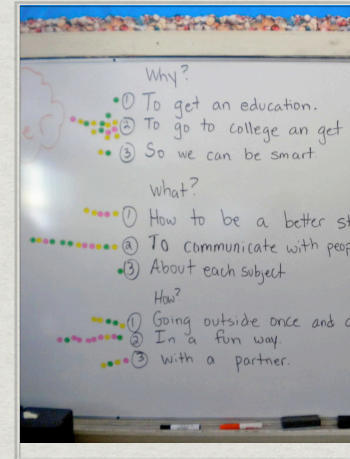 Why?
① To get an education.
② To go to college an get
③ So we can be smart
What?
① How to be a better
② To communicate with
③ About each subject
How?
① Going outside once and
② In a fun way.
③ with a partner.